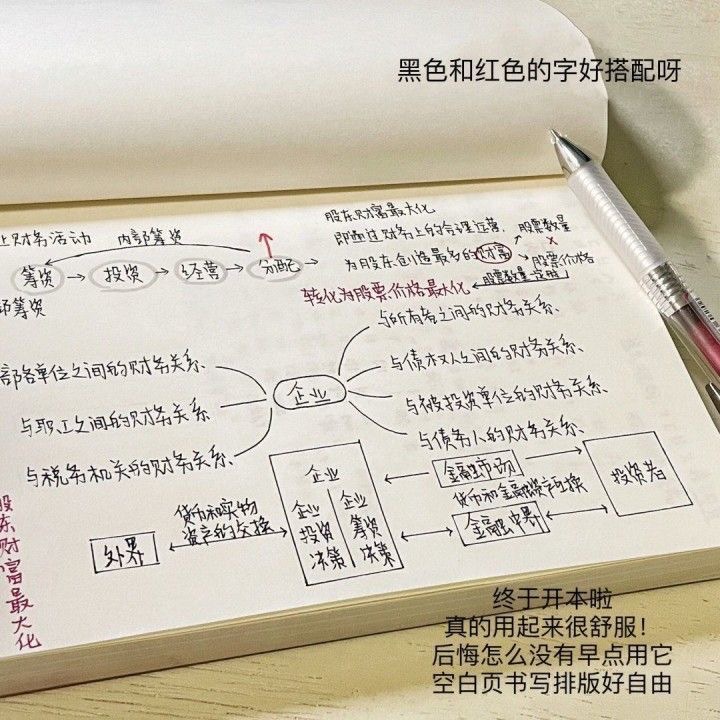 黑色和红色的字好搭配呀
股东财富最大化
财务活动 内部筹资
即通过财务上的合理运营,
股票数量
筹资 → 投资 → 经营 → 分配 →
为股东创造最多的财富 → 股票价格
部筹资
转化为股票价格最大化
股票数量定时
与所有者之间的财务关系
部各单位之间的财务关系
与债权人之间的财务关系、
企业
与职工之间的财务关系、
与被投资单位的财务关系、
与税务机关的财务关系、
与债务人的财务关系、
企业
金融市场
投资者
货币和实物
资产的交换
企业投资决策
企业筹资决策
货币和金融资产交换
外界
金融中介
股东财富最大化
终于开本啦
真的用起来很舒服！
后悔怎么没有早点用它
空白页书写排版好自由